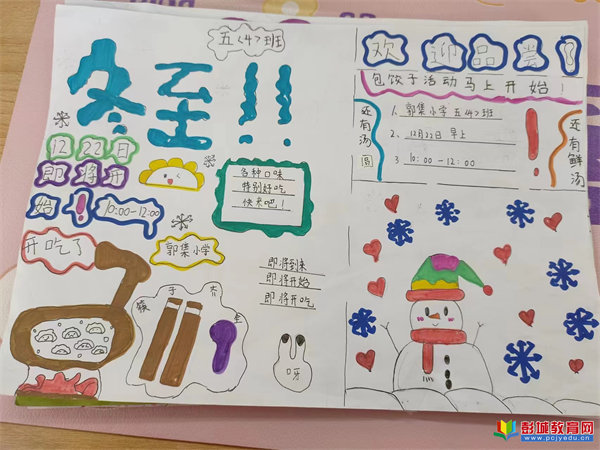 五〈4〉班
冬至!!
12 22日
即将开
始! 10:00-12:00
开吃了
郭集小学
各种口味
特别好吃
快来吧!
即将到来
即将开始
即将开吃
筷子
呀
欢迎品尝
包饺子活动马上开始!
还有汤圆
1、郭集小学五〈4〉班
2、12月22日 早上
3 10:00-12:00
!
还有鲜汤
彭城教育网
www.pcjyedu.cn